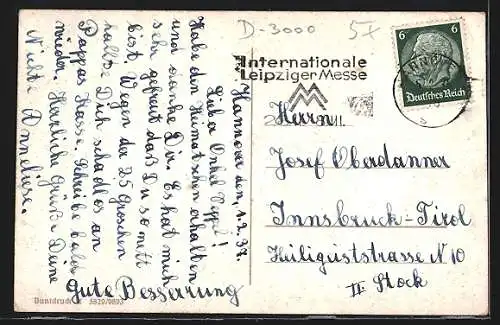 D-3000 57
Internationale
Leipziger Messe
6 6
Deutsches Reich
Hannover den, 1.2.37.
Lieber Onkel Peppi!
Habe den Heimatschein erhalten
und danke Dir. Es hat mich
sehr gefreut daß Du so nett
bist. Wegen der 25 Groschen
haltse Dich schadlos an
Pappas Kasse. Schreibe bald
wieder. Herzliche Grüße Deine
Nichte Anneliese.
Gute Besserung
Herrn
Josef Oberdanner
Innsbruck-Tirol
Heiliggeiststrasse N 10
II Stock